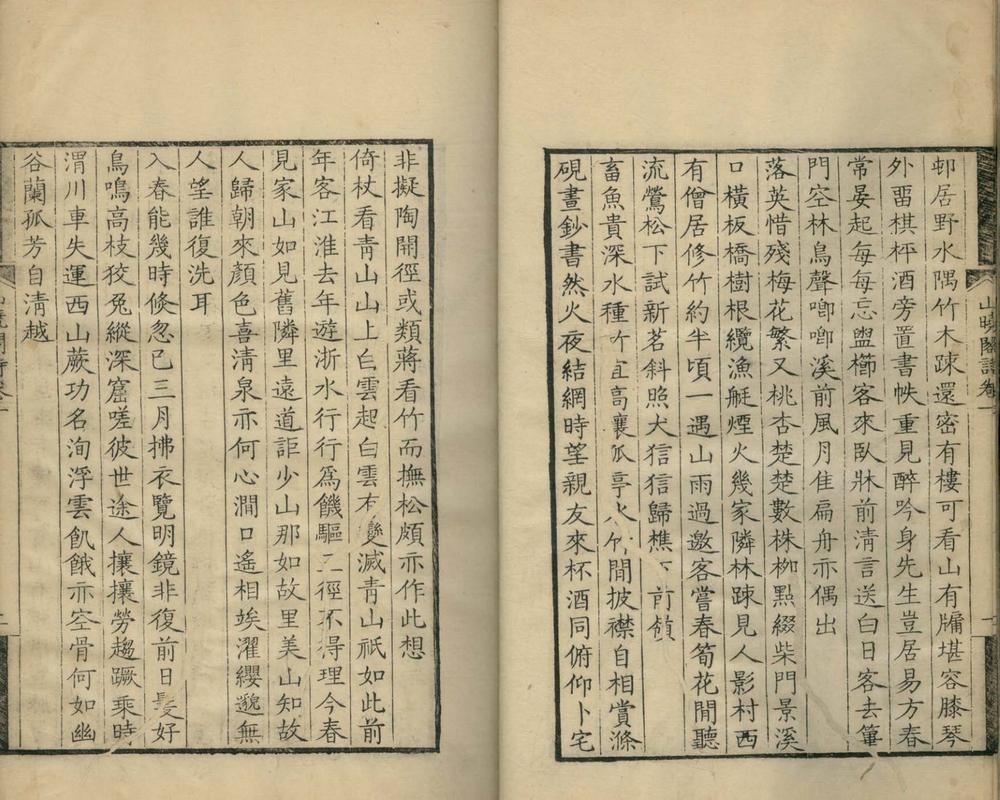 邨居野水隅竹木疎還密有樓可看山有牗堪容膝琴
外畱棋枰酒旁置書帙重見醉吟身先生豈居易方春
常晏起每每忘盥櫛客來臥牀前淸言送白日客去篳
門空林鳥聲唧唧溪前風月隹扁舟亦偶出
落英惜殘梅花繁又桃杏楚楚數株栁㸃綴柴門景溪
口橫板橋樹根纜漁艇煙火幾家隣林踈見人影村西
有僧居修竹約半頃一遇山雨過邀客嘗春筍花閒聽
流鶯松下試新茗斜照犬狺狺歸樵下前嶺
畜魚貴深水種竹宜高襄亭閒披襟自相賞滌
硯畫鈔書然火夜結網時望親友來杯酒同俯仰卜宅
山曉閣詩卷一
非擬陶開徑或類蔣看竹而撫松頗亦作此想
倚杖看靑山山上白雲起白雲有變滅靑山祇如此前
年客江淮去年遊浙水行行爲饑驅三徑不得理今春
見家山如見舊隣里遠道詎少山那如故里美山知故
人歸朝來顏色喜淸泉亦何心澗口遙相竢濯纓邈無
人望誰復洗耳
入春能幾時倏忽已三月拂衣覽明鏡非復前日髮好
鳥鳴高枝狡兔縱深窟嗟彼世途人攘攘勞趨蹶乘時
渭川車失運西山蕨功名洵浮雲飢餓亦空骨何如幽
谷蘭孤芳自淸越